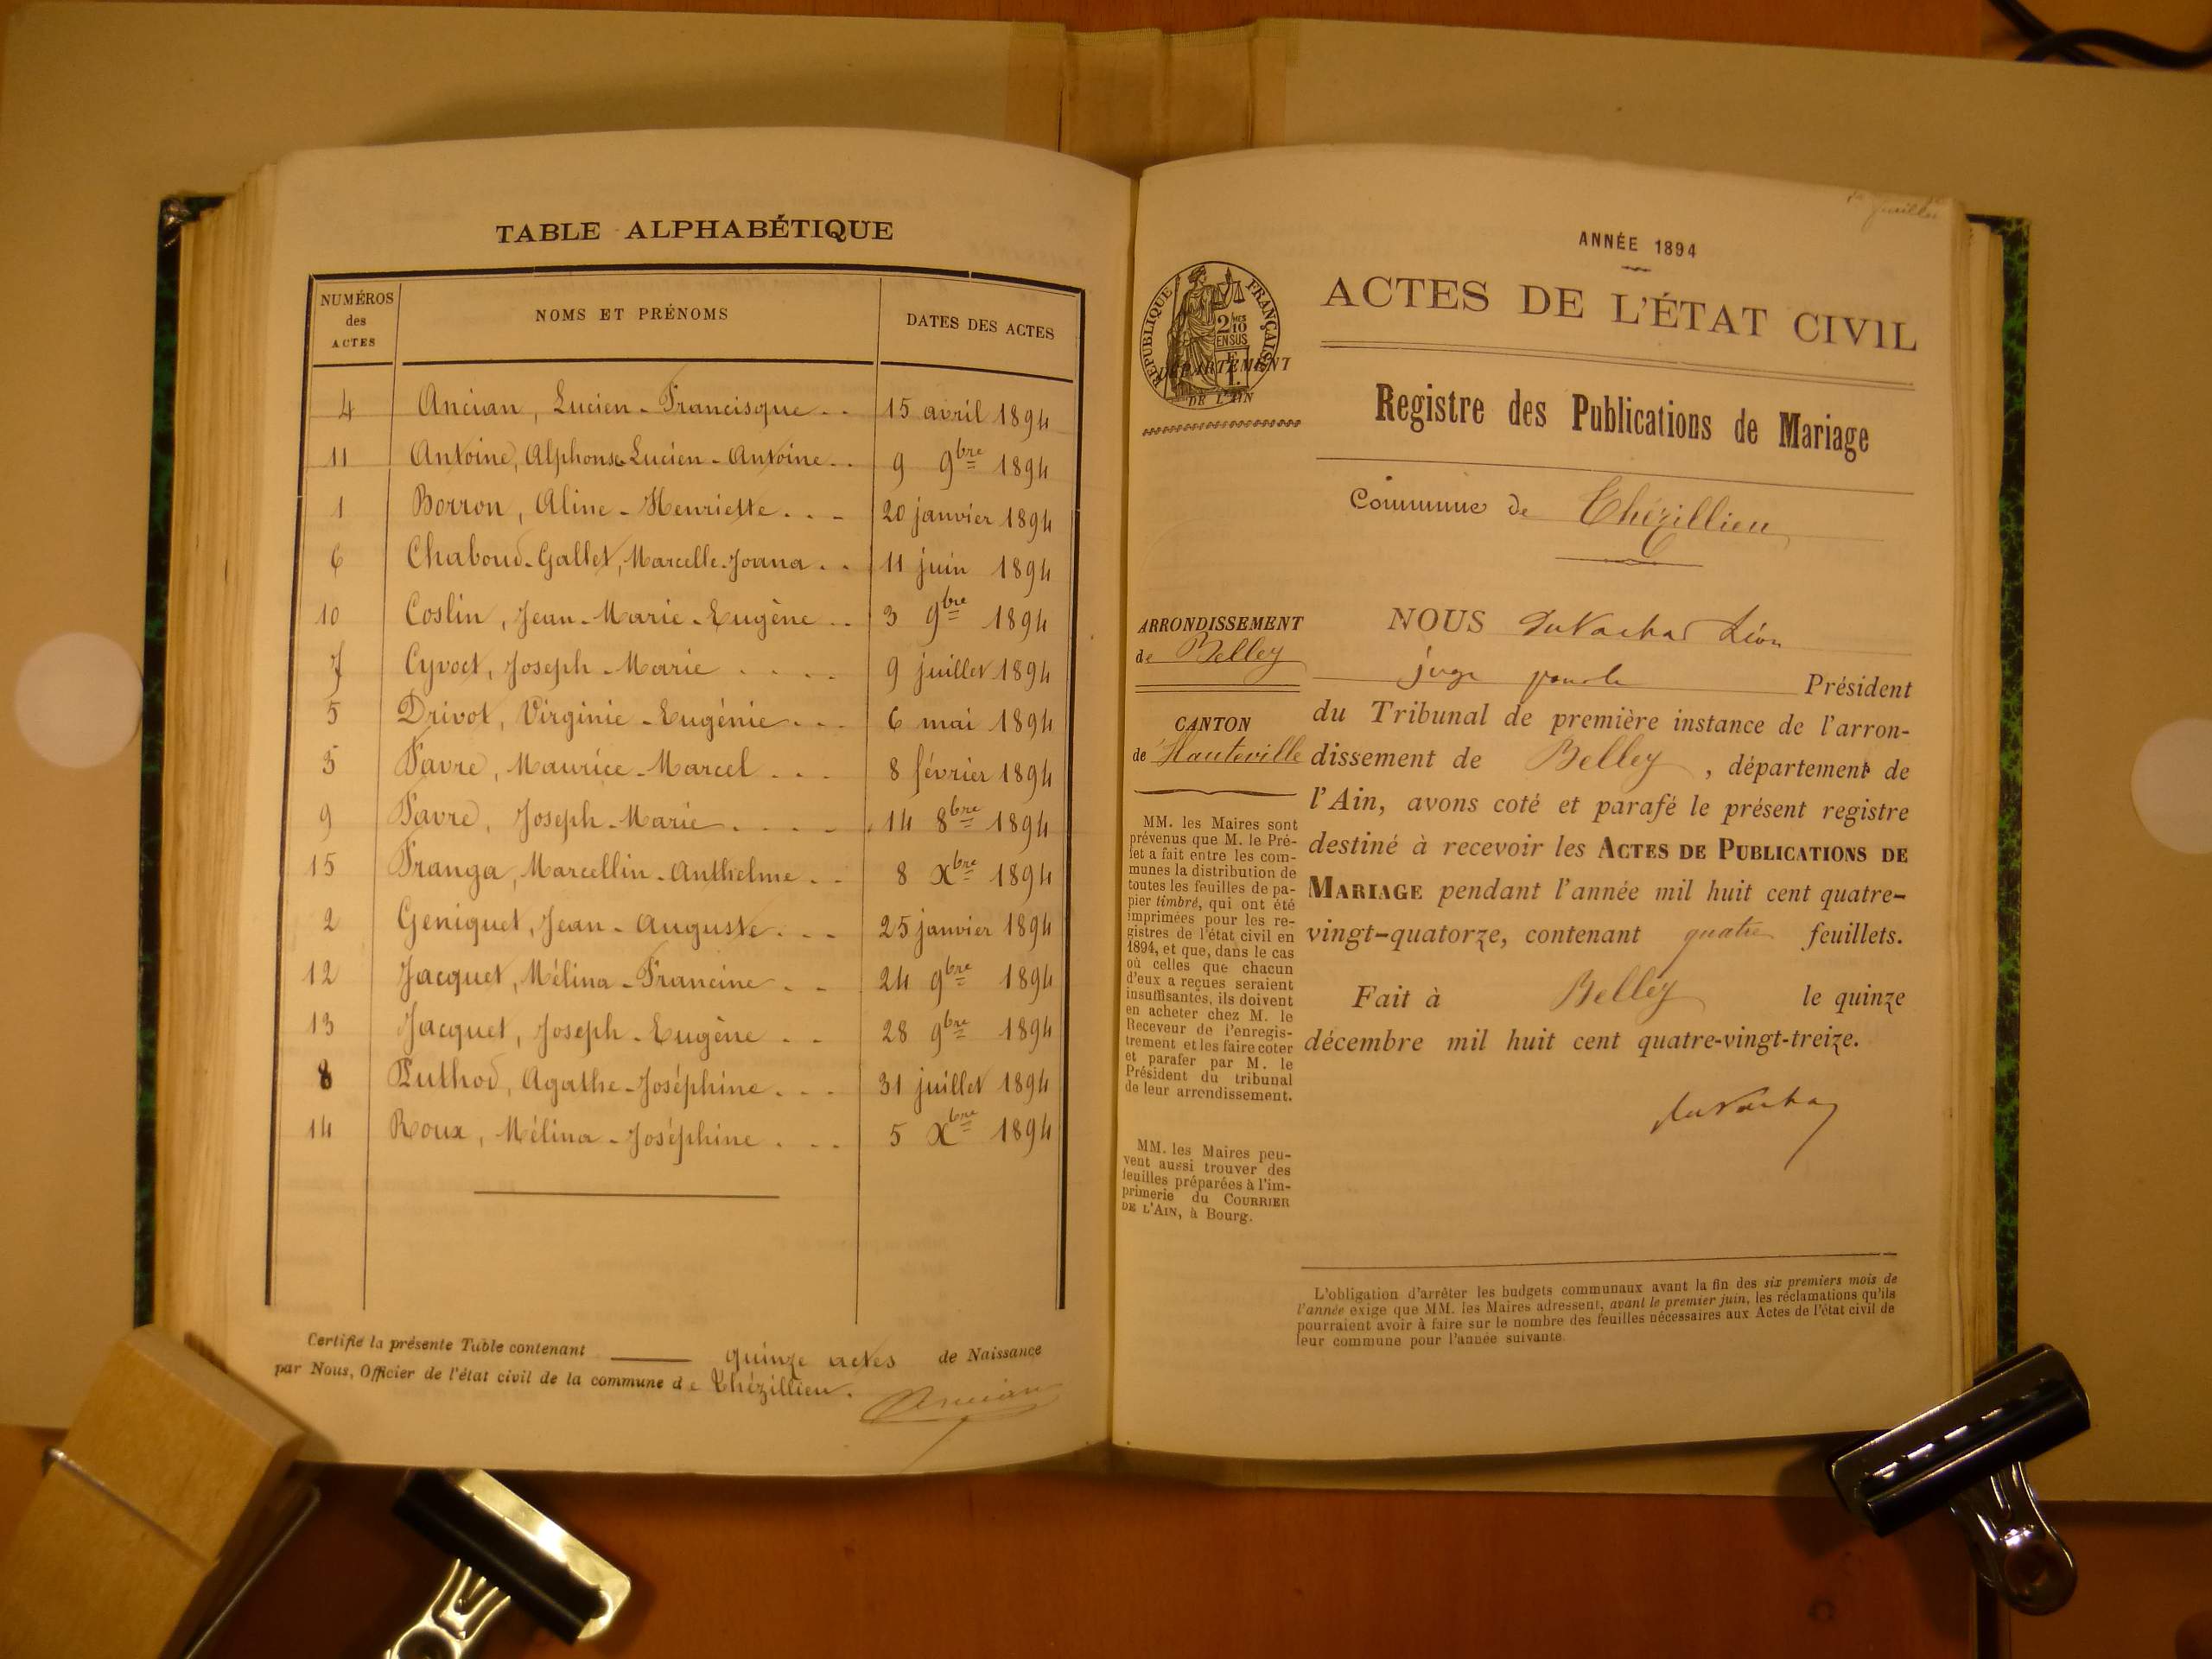 TABLE ALPHABÉTIQUE
NUMÉROS des ACTES | NOMS ET PRÉNOMS | DATES DES ACTES
4 Ancian, Lucien-Francisque 15 avril 1894
11 Antoine, Alphonse-Lucien-Antoine 9 9bre 1894
1 Borron, Aline-Henriette 20 janvier 1894
6 Chaboud-Gallet, Marcelle-Joana 11 juin 1894
10 Coslin, Jean-Marie-Eugène 3 9bre 1894
7 Cyvoct, Joseph-Marie 9 juillet 1894
5 Drivot, Virginie-Eugénie 6 mai 1894
3 Favre, Maurice-Marcel 8 février 1894
9 Favre, Joseph-Marie 14 8bre 1894
15 Franga, Marcellin-Anthelme 8 Xbre 1894
2 Geniquet, Jean-Auguste 25 janvier 1894
12 Jacquet, Mélina-Francine 24 9bre 1894
13 Jacquet, Joseph-Eugène 28 9bre 1894
8 Puthod, Agathe-Joséphine 31 juillet 1894
14 Roux, Mélina-Joséphine 5 Xbre 1894
Certifié la présente Table contenant quinze actes de Naissance
par Nous, Officier de l'état civil de la commune de Thézillieu.
Ancian
ANNÉE 1894
ACTES DE L'ÉTAT CIVIL
RÉPUBLIQUE FRANÇAISE
2 10mes EN SUS
DÉPARTEMENT
DE L'AIN
Registre des Publications de Mariage
Commune de Thézillieu
ARRONDISSEMENT
de Belley
CANTON
de Hauteville
MM. les Maires sont
prévenus que M. le Pré-
fet a fait entre les com-
munes la distribution de
toutes les feuilles de pa-
pier timbré, qui ont été
imprimées pour les re-
gistres de l'état civil en
1894, et que, dans le cas
où celles que chacun
d'eux a reçues seraient
insuffisantes, ils doivent
en acheter chez M. le
Receveur de l'enregis-
trement et les faire coter
et parafer par M. le
Président du tribunal
de leur arrondissement.
MM. les Maires peu-
vent aussi trouver des
feuilles préparées à l'im-
primerie du COURRIER
DE L'AIN, à Bourg.
NOUS Léon
juge pour le Président
du Tribunal de première instance de l'arron-
dissement de Belley, département de
l'Ain, avons coté et parafé le présent registre
destiné à recevoir les ACTES DE PUBLICATIONS DE
MARIAGE pendant l'année mil huit cent quatre-
vingt-quatorze, contenant quatre feuillets.
Fait à Belley le quinze
décembre mil huit cent quatre-vingt-treize.
L'obligation d'arrêter les budgets communaux avant la fin des six premiers mois de
l'année exige que MM. les Maires adressent, avant le premier juin, les réclamations qu'ils
pourraient avoir à faire sur le nombre des feuilles nécessaires aux Actes de l'état civil de
leur commune pour l'année suivante.